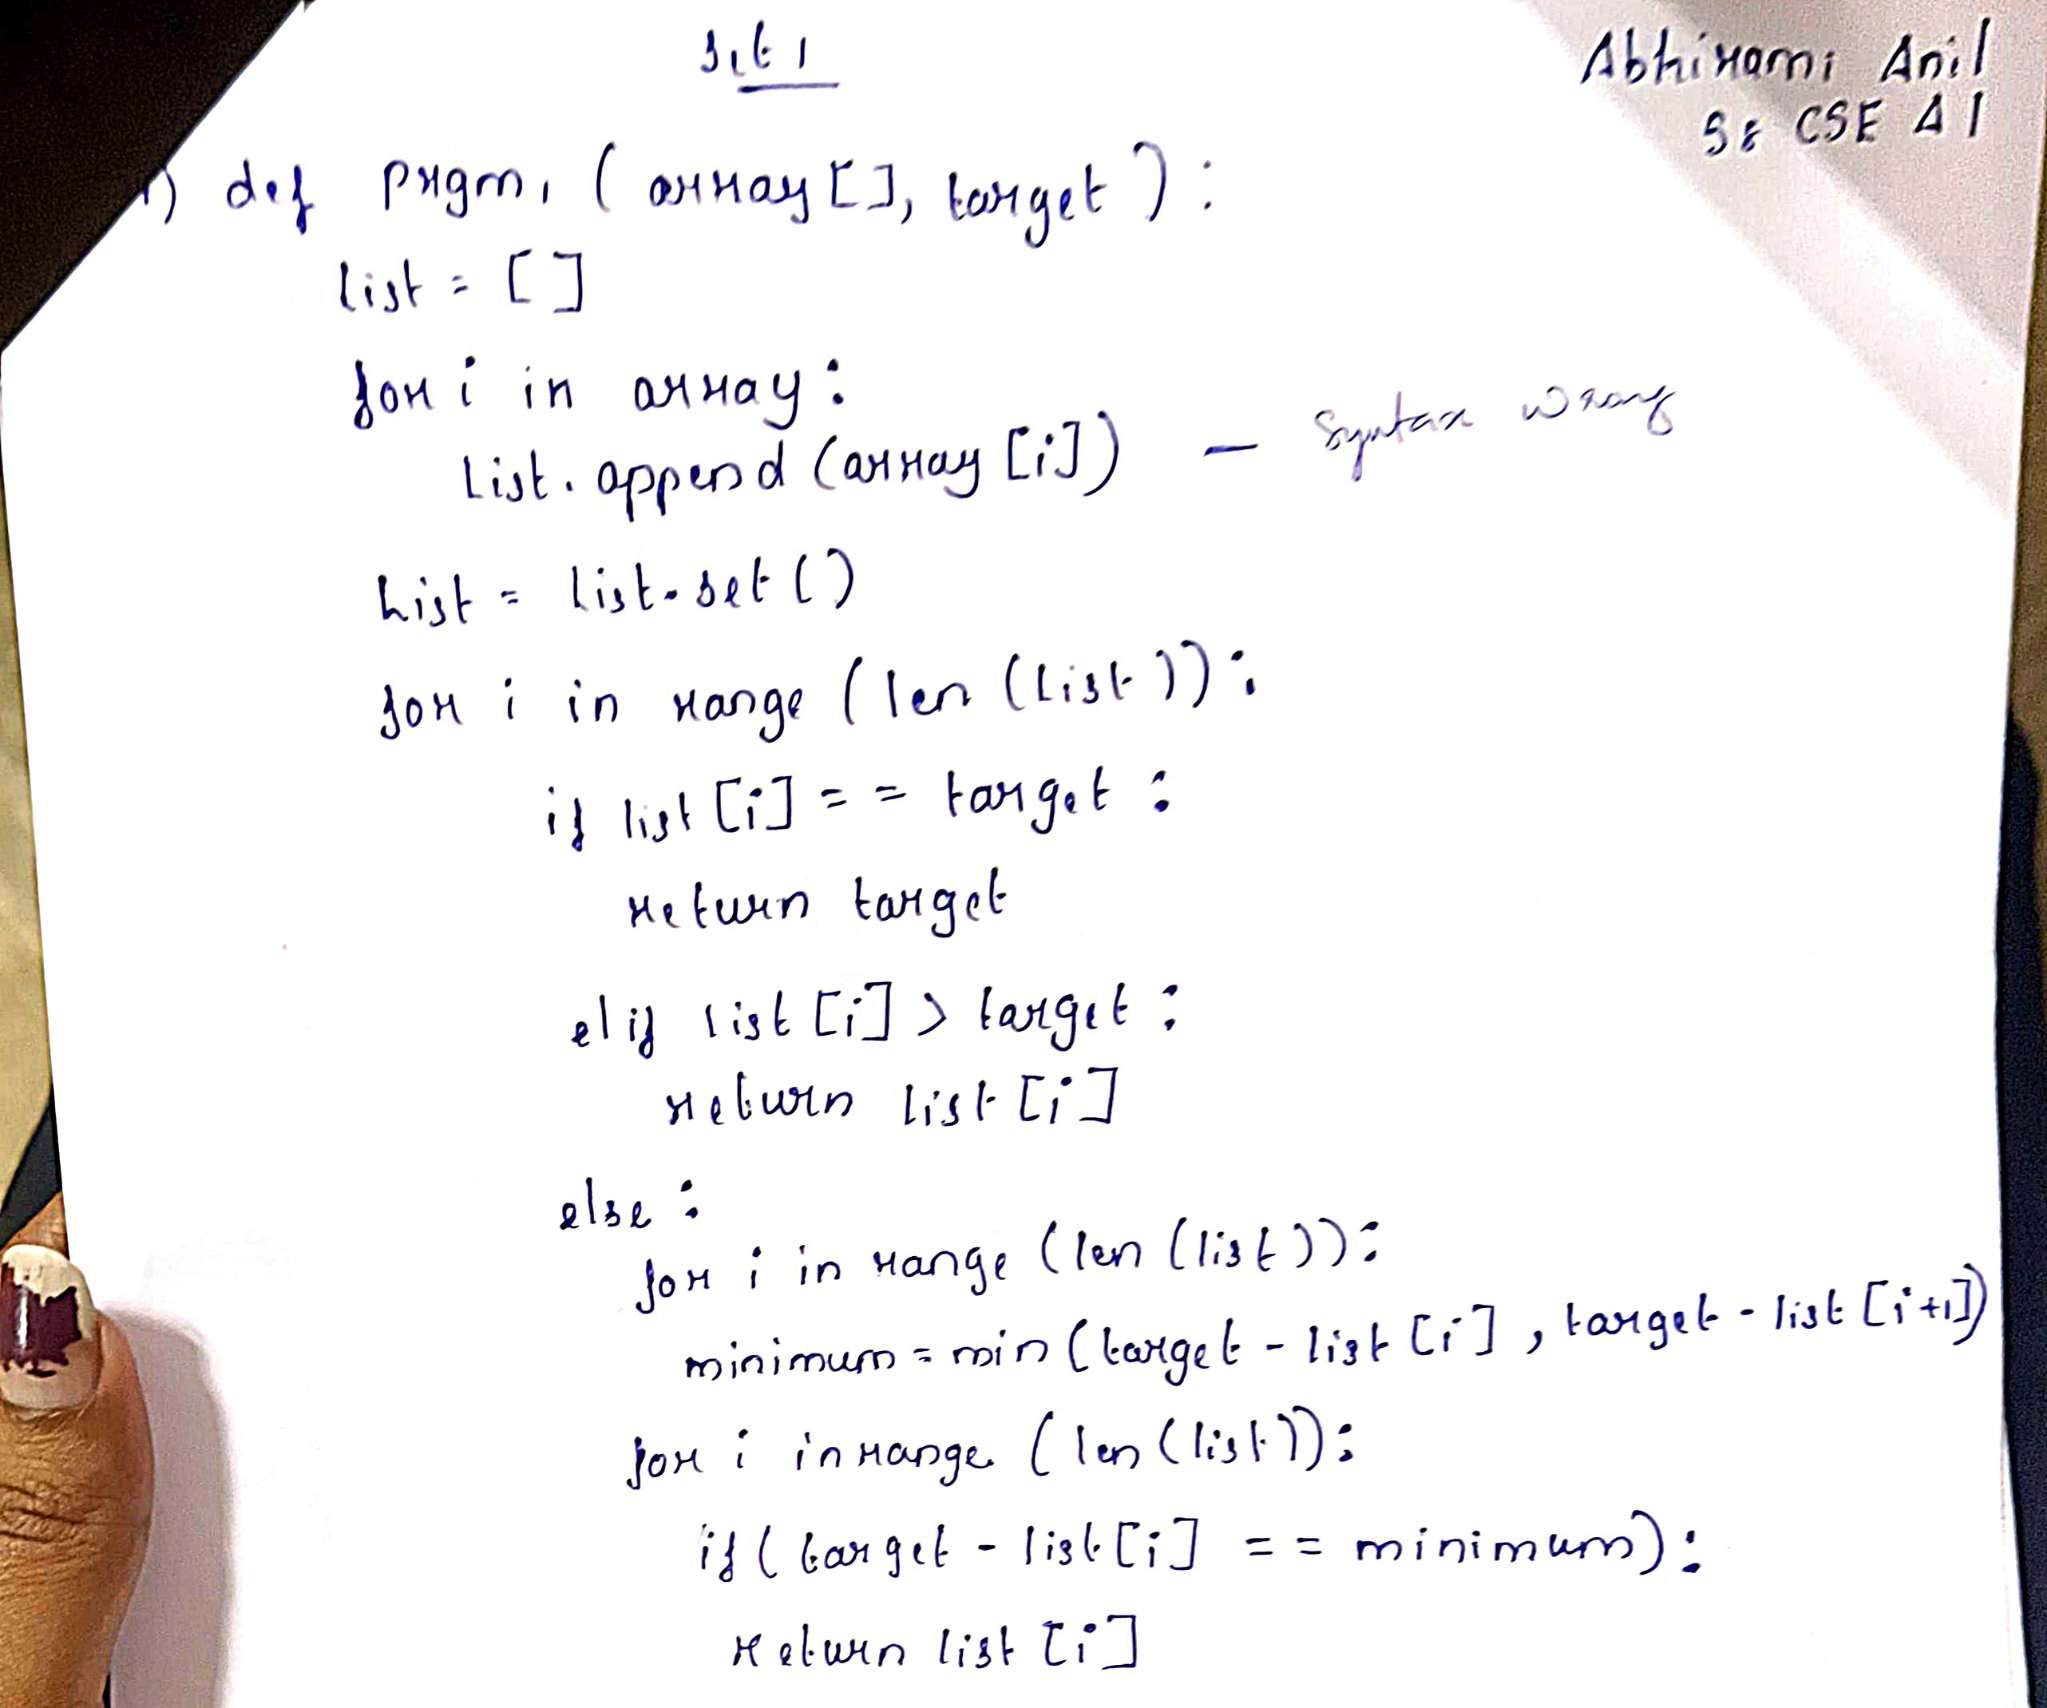 Set 1
Abhirami Anil
S8 CSE A1
1) def prgm1 (array[], target):
list = []
for i in array:
List.append (array [i]) - Syntax wrong
List = list.set ()
for i in range (len (list)):
if list [i] == target:
return target
elif list [i] > target:
return list [i]
else:
for i in range (len (list)):
minimum = min (target - list [i], target - list [i+1])
for i in range (len (list)):
if (target - list [i] == minimum):
return list [i]